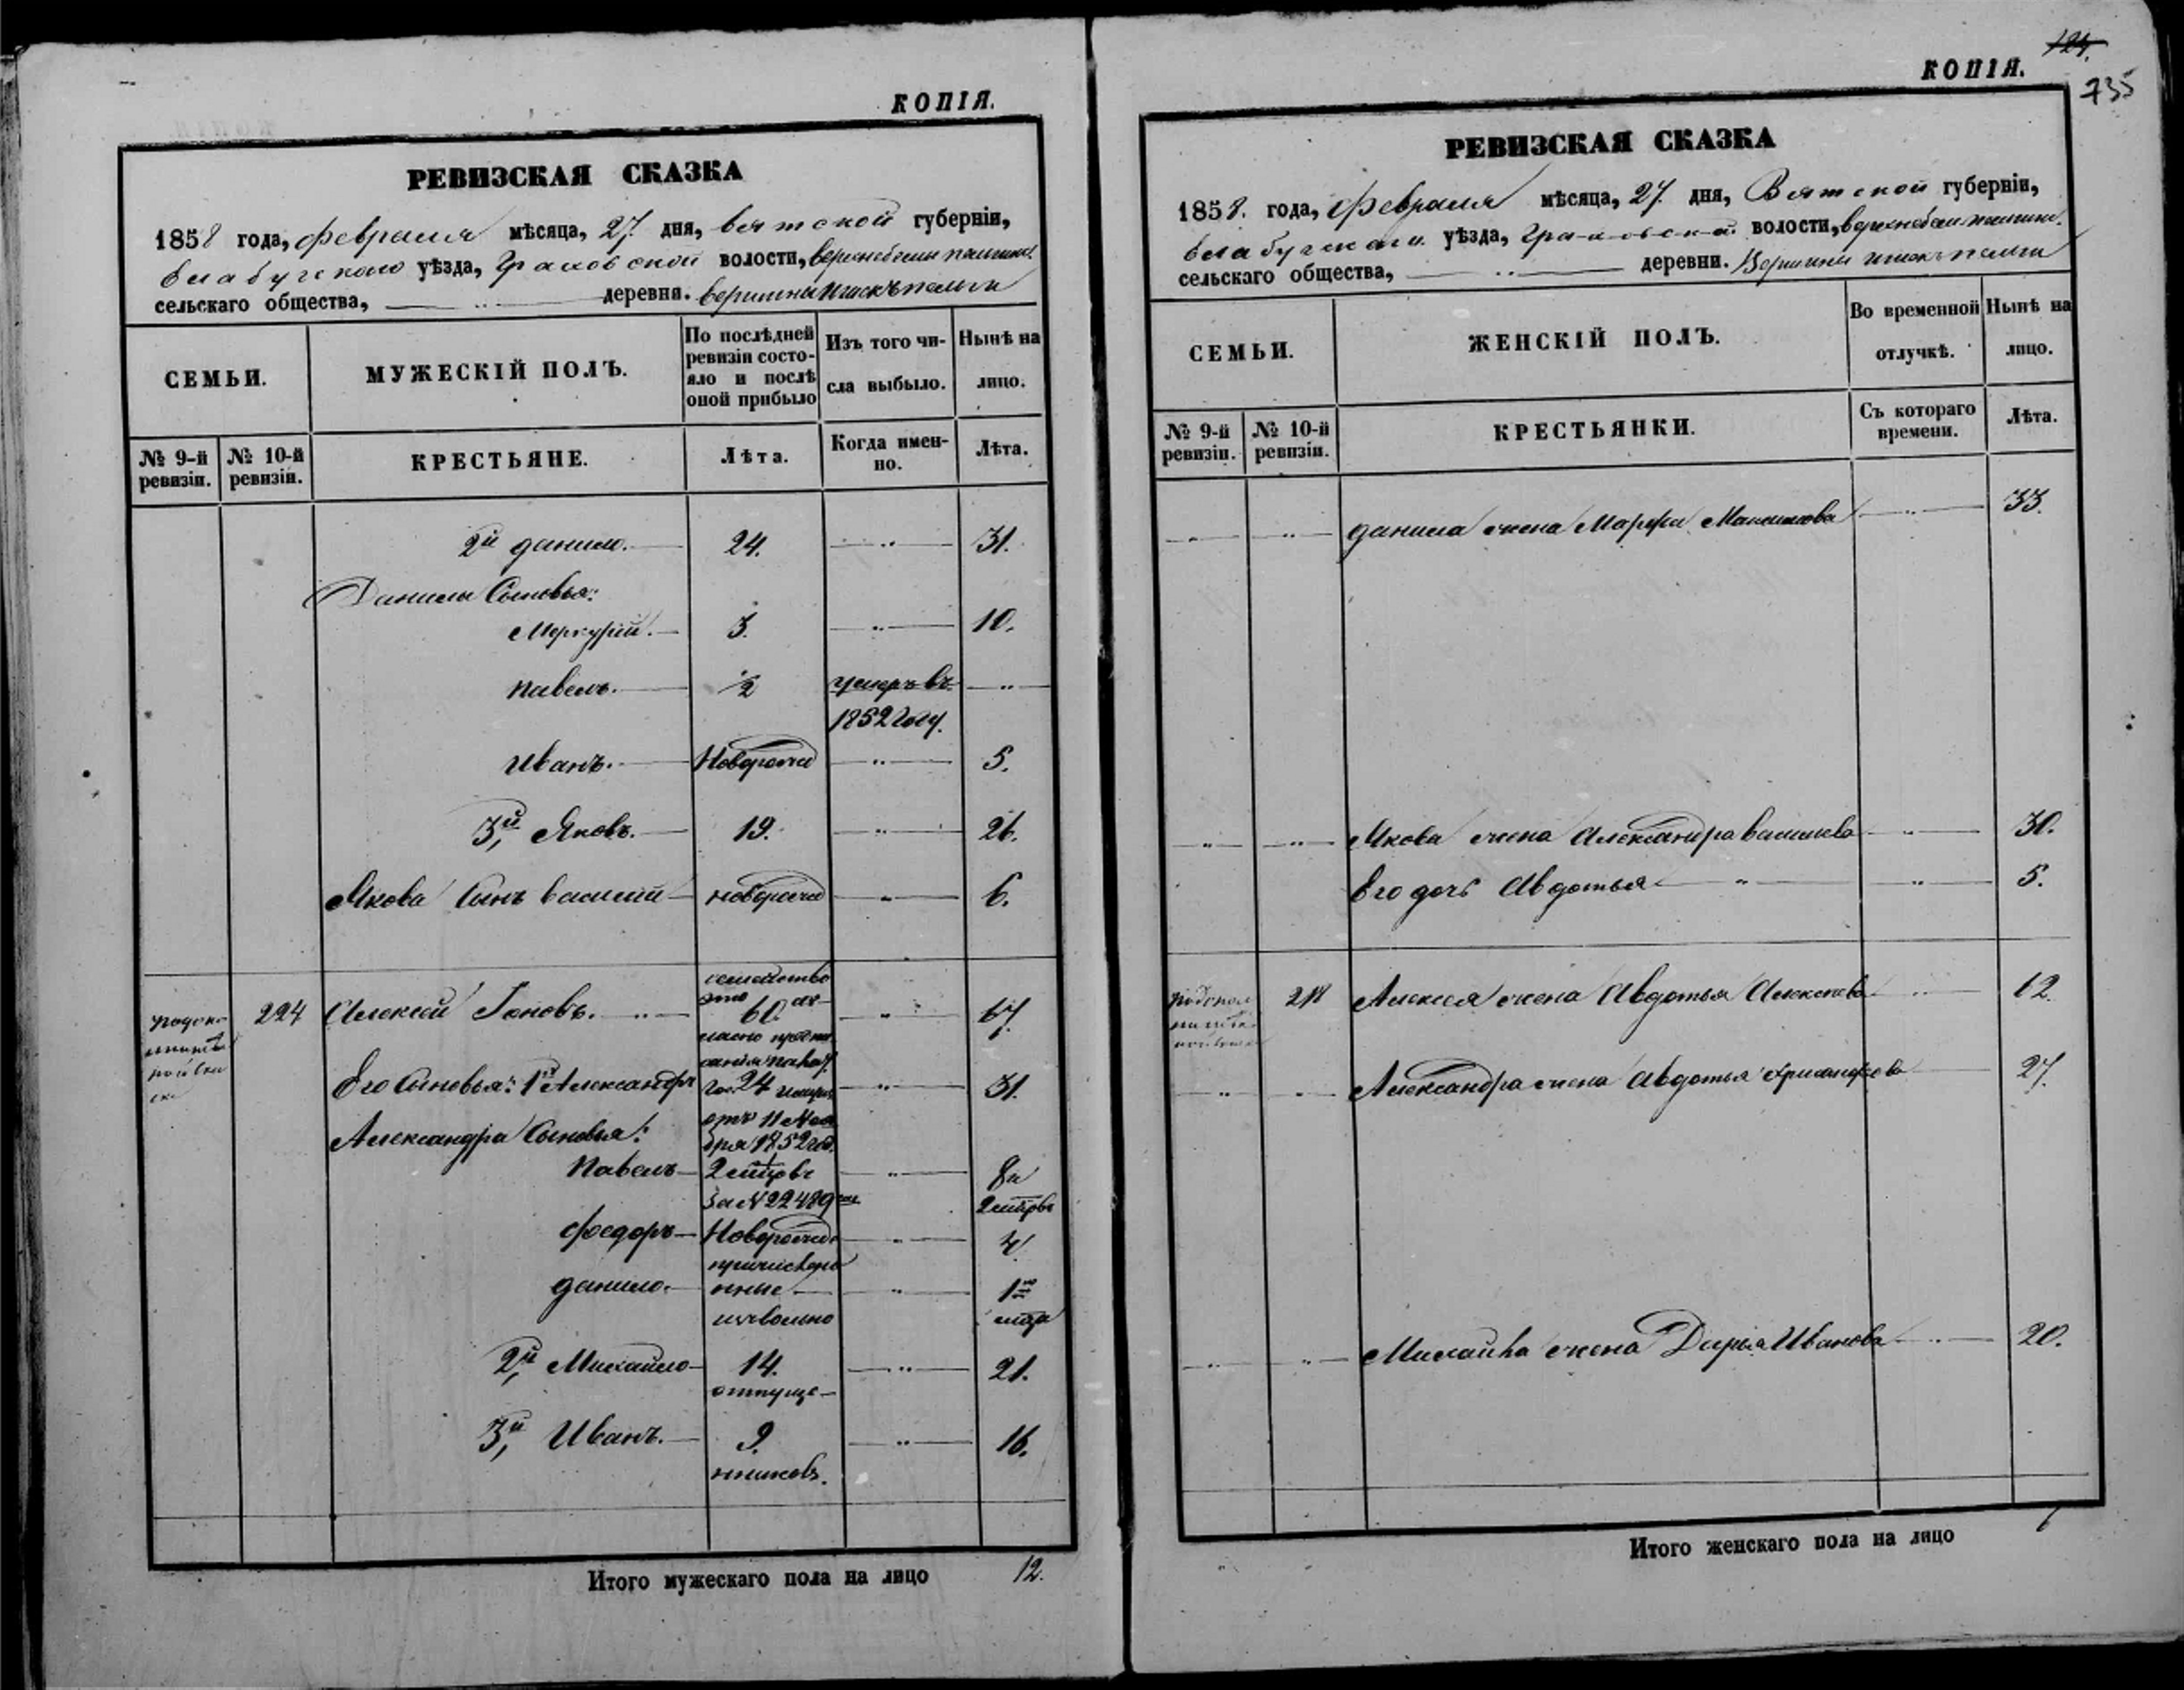 КОПІЯ.
РЕВИЗСКАЯ СКАЗКА
1858 года, февраля мѣсяца, 27. дня, вятской губерніи,
елабугского уѣзда, Граховской волости,
сельскаго общества, — " — деревни. вершины
СЕМЬИ.
МУЖЕСКІЙ ПОЛЪ.
По послѣдней ревизіи состо-
яло и послѣ
оной прибыло
Изъ того чи-
сла выбыло.
Нынѣ на
лицо.
№ 9-й ревизіи.
№ 10-й ревизіи.
КРЕСТЬЯНЕ.
Лѣта.
Когда имен-
но.
Лѣта.
2й данило. — 24. — " — 31.
Данилы Сыновья:
Меркурий. — 3. — " — 10.
павелъ. — 1/2 умеръ въ — " —
1852 году.
иванъ. — Новорожд — " — 5.
3й, Яковъ. — 19. — " — 26.
Якова Сынъ василий — новорожд — " — 6.
семейство
это
224 Алексей Гоновъ. — " — 60 — " — 67.
Его Сыновья: 1й Александръ 24 — " — 31.
отъ 11 Ноя
бря 1852 год.
Александра Сыновья:
павелъ — 2 мцовъ — " — 8и
За N 22489 2 мцовъ
федоръ — Новорожд — " — 4.
причислен
данило. — ные — " — 1го
мца
2й, Михайло — 14. — " — 21.
отпуще—
3й, Иванъ. — 9. — " — 16.
нниковъ.
Итого мужескаго пола на лицо 12.
124.
КОПІЯ.
735
РЕВИЗСКАЯ СКАЗКА
1858. года, февраля мѣсяца, 27. дня, Вятской губерніи,
елабугскаго уѣзда, Граховской волости,
сельскаго общества, — " — деревни. Вершины
СЕМЬИ.
ЖЕНСКІЙ ПОЛЪ.
Во временной
отлучкѣ.
Нынѣ на
лицо.
№ 9-й ревизіи.
№ 10-й ревизіи.
КРЕСТЬЯНКИ.
Съ котораго
времени.
Лѣта.
— " — " — данила жена Марфа Максимова — " — 33.
— " — " — Якова жена Александра васильева — " — 30.
Его дочь Авдотья — " — " — 5.
218 Алексея жена Авдотья Алексеева — " — 62.
— " — " — Александра жена Авдотья — 27.
— " — " — Михайла жена Дарья Иванова — " — 20.
Итого женскаго пола на лицо 6